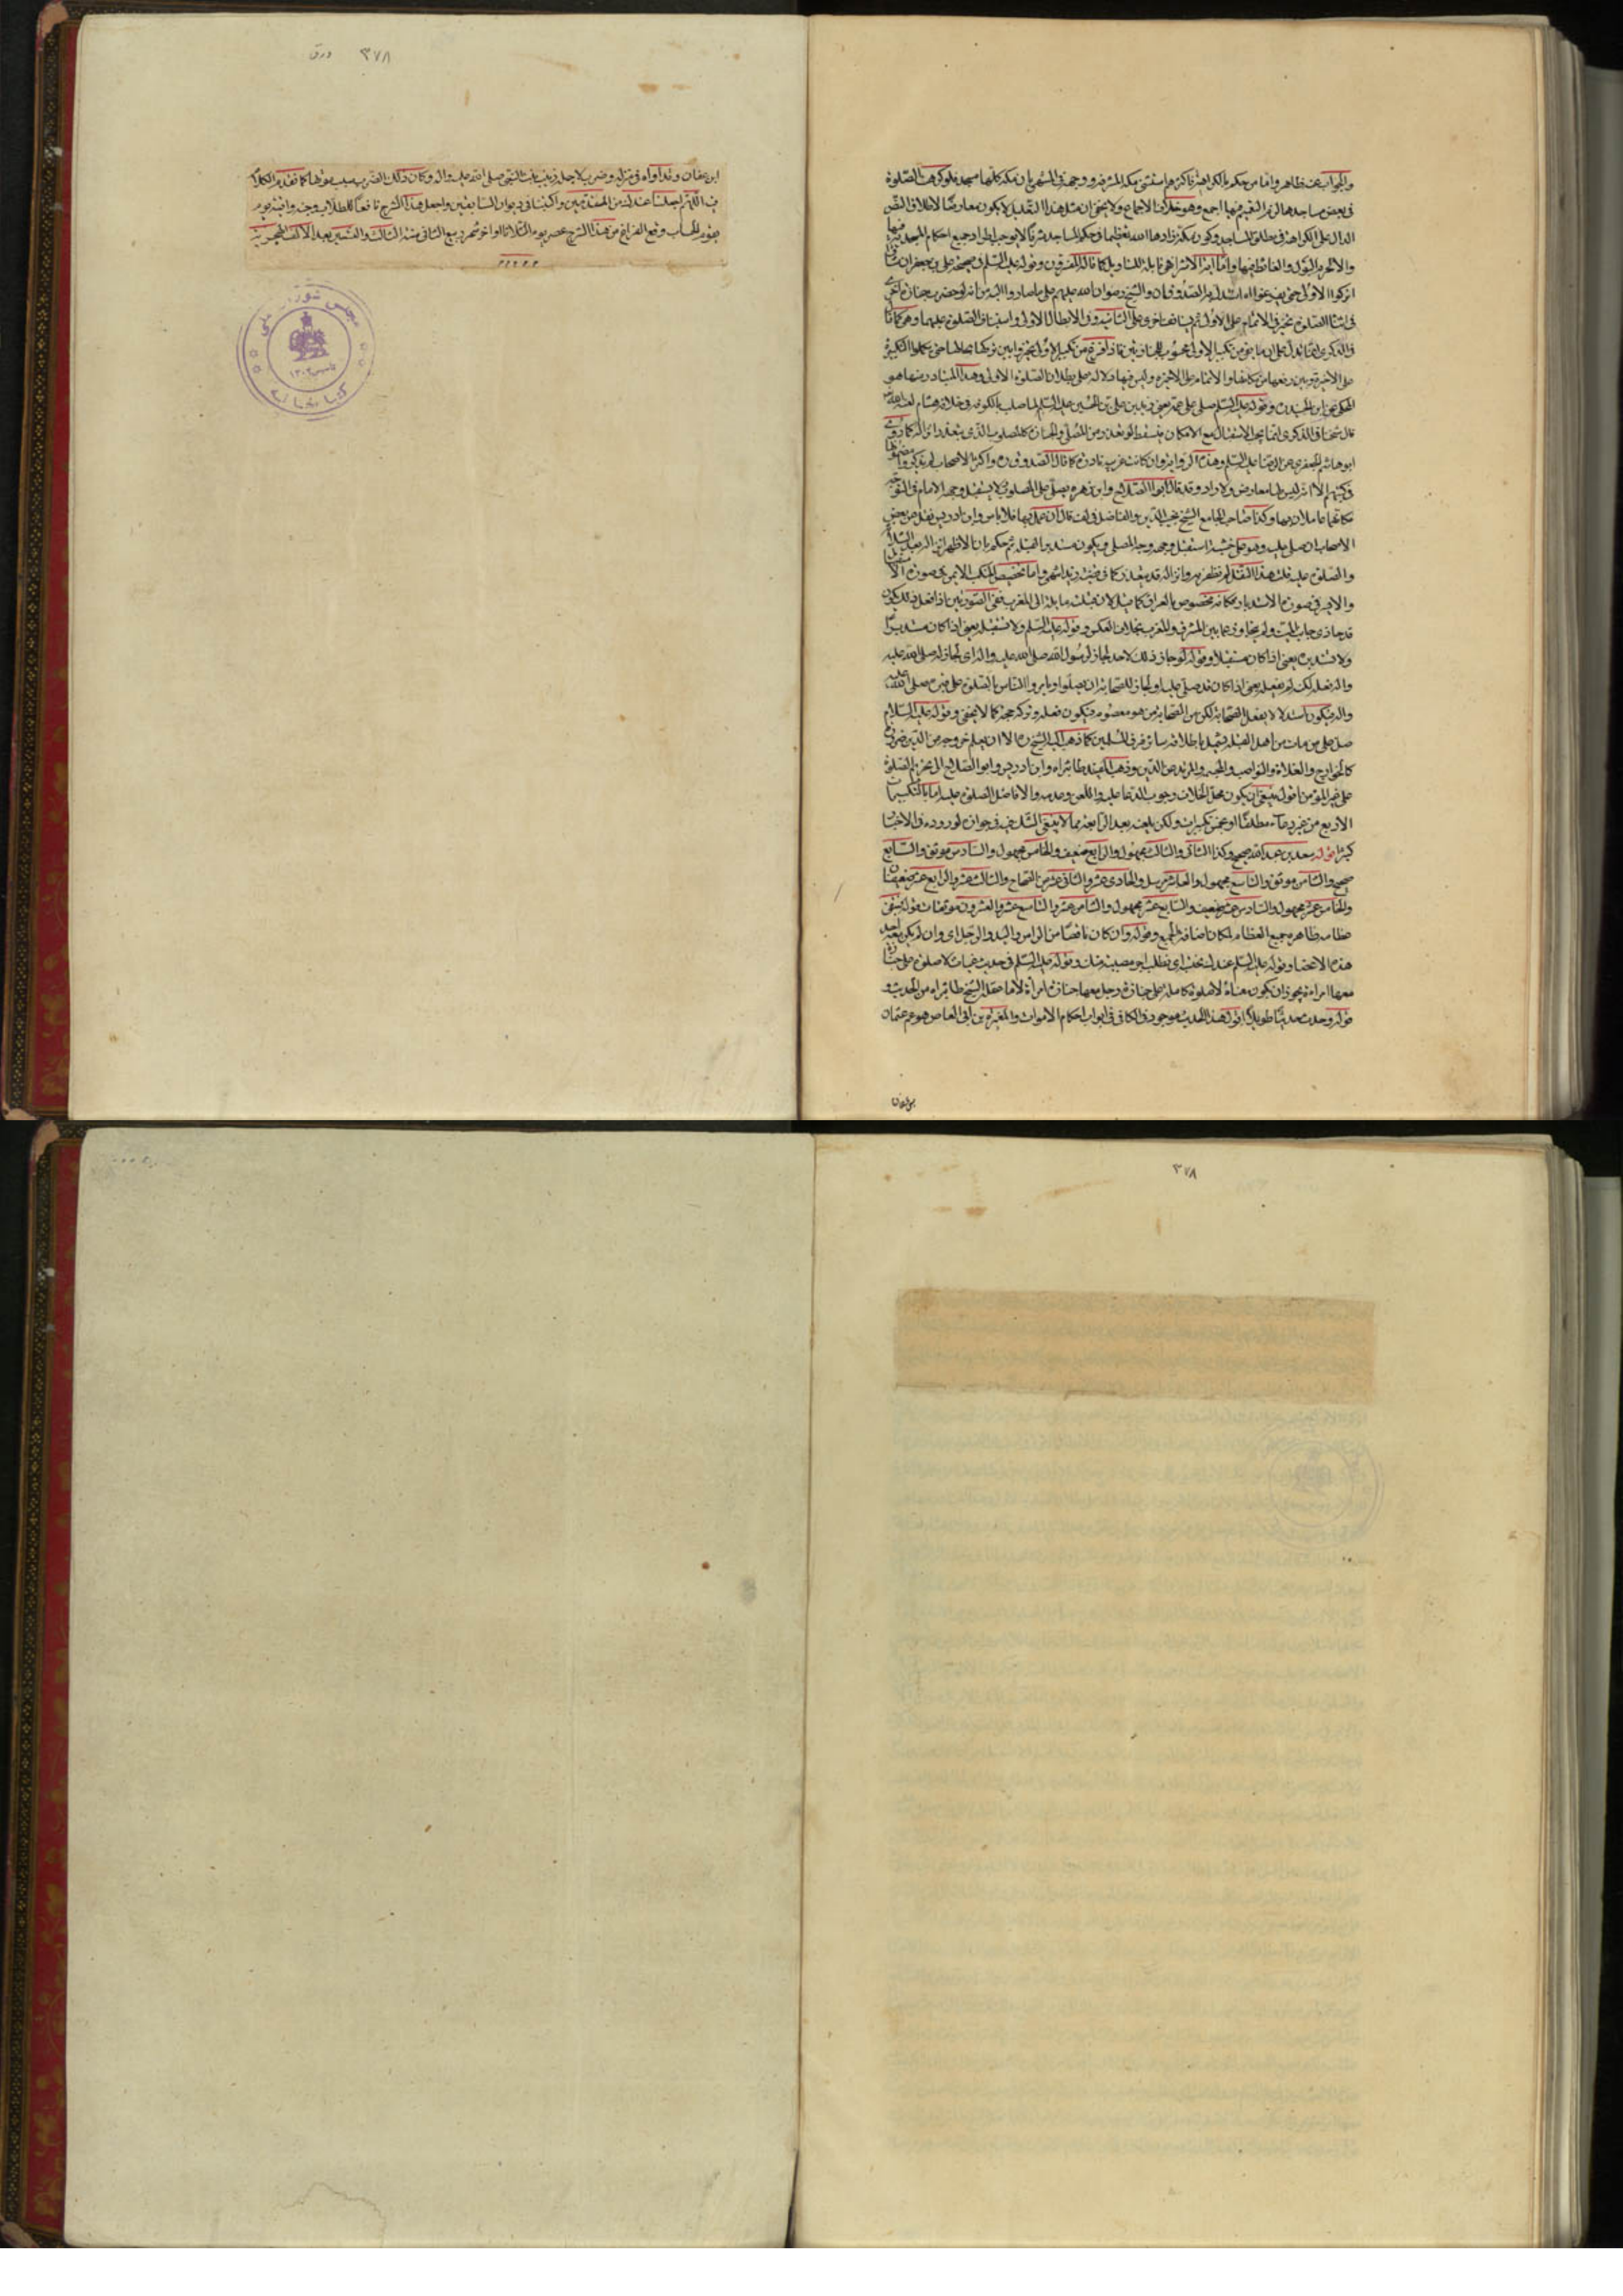 والجواب عنه ظاهر واما من حكم بالكراهة فاكثرهم استثنى مكة المشرفة ووجهه في المشهور بان مكة كلها مسجد فلو كرهت الصلوة
في بعض مساجدها لزم التعميم فيها اجمع وهو خلاف الاجماع ولا يخفى ان مثل هذا التعليل لا يكون معارضا لاطلاق النص
الدال على الكراهة في مطلق المساجد وكون مكة زادها الله تعظيما في حكم المساجد شرفا لا يوجب اطراد جميع احكام المسجد فيها
والا لحرم البول والغائط فيها واما
اتركوا الاولى حتى
في اثناء الصلوة تخير في الاتمام على الاولى ثم يستأنف اخرى على الثانية وفي الابطال الاولى واستيناف الصلوة عليهما وهو كما قال
في الذكرى انما يدل على ان ما بقي من تكبير الاولى محسوب للجنازتين فاذا فرغ من تكبير الاولى تخيروا بين تركها بحالها حتى يكملوا التكبيرة
على الاخيرة وبين رفعها من مكانها والاتمام على الاخيرة وليس فيها دلالة على بطلان الصلوة الاولى وهذا المتبادر منها هو
المحكي عن ابن الجنيد وقوله عليه السلم صلى على عمه يعني زيد بن علي بن الحسين عليه السلم لما صلب بالكوفة في خلافة هشام لعنه الله
قال شيخنا في الذكرى انما يجب الاستقبال مع الامكان فيسقط لو تعذر من المصلي والجنازة كالمصلوب الذي يتعذر انزاله كما روى
ابو هاشم الجعفري عن الرضا عليه السلم وهذه الرواية وان كانت غريبة نادرة كما قال الصدوق واكثر الاصحاب لم يذكروا مضمونها
في كتبهم الا انه ليس لها معارض ولا راد وقد قال ابو الصلاح وابن زهره يصلى على المصلوب ولا يستقبل وجهه الامام في التوجه
فكانهما عاملان بها وكذا صاحب الجامع الشيخ نجيب الدين والفاضل في لف قال ان عمل بها فلا باس وابن ادريس نقل عن بعض
الاصحاب ان صلى عليه وهو على خشبة استقبل وجهه وجه المصلي ويكون مستدبر القبلة ثم حكم بان الاظهر انزاله بعد الثلاثة
والصلوة عليه قلت هذا النقل لم نظفر به وانزاله قد يتعذر كما في قضية زيد انتهى واما تخصيص المنكب الايمن
والايسر في صورة الاستدبار فكانه مخصوص بالعراق كما قيل لان قبلته مايلة الى المغرب ففي الصورتين اذا فعل ذلك يكون
قد حاذى جانب الميت ولم يتجاوز عما بين المشرق والمغرب بخلاف العكس وقوله عليه السلم ولا تستقبله يعني اذا كان مستدبرا
ولا تستدبره يعني اذا كان مستقبلا وقوله لو جاز ذلك لاحد لجاز لرسول الله صلى الله عليه واله اي لجاز له صلى الله عليه
واله فعله لكن لم يفعله يعني اذا كان قد صلى عليه او لجاز للصحابة ان يصلوا او يامروا الناس بالصلوة على قبره صلى الله عليه
واله فيكون استدلالا بفعل الصحابة لكن من الصحابة من هو معصوم فيكون فعله وتركه حجة كما لا يخفى وقوله عليه السلام
صل على من مات من اهل القبلة يشمل باطلاقه سائر فرق المسلمين كما ذهب اليه الشيخ ره الا ان يعلم خروجه من الدين ضرورة
كالخوارج والغلاة والنواصب والمجبرة والمرتد عن الدين وذهب المفيد طاب ثراه وابن ادريس وابو الصلاح الى تحريم الصلوة
على غير المؤمن اقول ينبغي ان يكون محل الخلاف وجوب الدعا عليه واللعن وعدمه والا فاصل الصلوة عليه اما بالتكبيرات
الاربع من غير دعاء مطلقا او بخمس تكبيرات ولكن بلعنه بعد الرابعة مما لا ينبغي الشك فيه في جوازه لوروده في الاخبار
كثيرا قوله سعد بن عبد الله صحيح وكذا الثاني والثالث مجهول والرابع ضعيف والخامس مجهول والسادس موثق والسابع
صحيح والثامن موثق والتاسع مجهول والعاشر مرسل والحادي عشر والثاني عشر من الصحاح والثالث عشر والرابع عشر ضعيفان
والخامس عشر مجهول والسادس عشر ضعيف والسابع عشر مجهول والثامن عشر والتاسع عشر والعشرون موثقات
عظامه ظاهره جميع العظام لمكان اضافة الجمع وقوله وان كان ناقصا من الراس واليد والرجل اي وان لم يكن معه احد
هذه الاعضا وقوله عليه السلم عندك نحتسبه اي نطلب اجر مصيبته منك وقوله عليه السلم في حديث غياث لا صلوة على جنازة
معها امراة يجوز ان يكون معناه لا صلوة كاملة على جنازة رجل معها جنازة امرأة لا ما حمله الشيخ طاب ثراه من الحديث و
قوله وحديث حديثا طويلا اقول هذا الحديث موجود في الكافي في ابواب احكام الاموات والمغيرة بن ابي العاص هو عم عثمان
بن عفان
٣٧٨ ورق
ابن عفان وقد اواه في منزله وضرب لاجله زينب بنت النبي صلى الله عليه واله وكان ذلك الضرب سبب موتها كما تقدم الكلام
فيه اللهم اجعلنا عندك من المتقدمين واكتبنا في ديوان السابقين واجعل هذا الشرح نافعا للطلاب وجنة واقية يوم
يقوم الحساب وقع الفراغ من هذا الشرح عصر يوم الثلاثا اواخر شهر ربيع الثاني سنة الثالث والتسعين بعد الالف الهجرية
مجلس شورای ملی
تاسیس ١٣٠٢
کتابخانه
٣٧٨